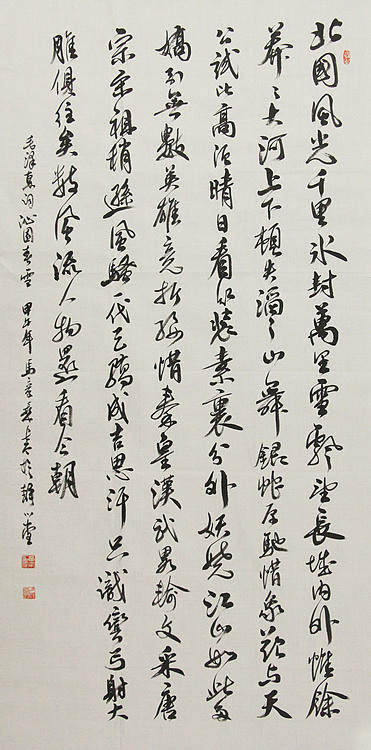 北國風光千里冰封萬里雪飄望長城内外惟餘
莽〻大河上下頓失滔〻山舞銀蛇原馳蜡象欲与天
公試比高須晴日看红装素裹分外妖娆江山如此多
嬌引無數英雄竞折腰惜秦皇漢武畧輸文采唐
宗宋祖稍遜風騷一代天驕成吉思汗只識彎弓射大
雕俱往矣數風流人物還看今朝
毛澤東词沁園春雪 甲午年